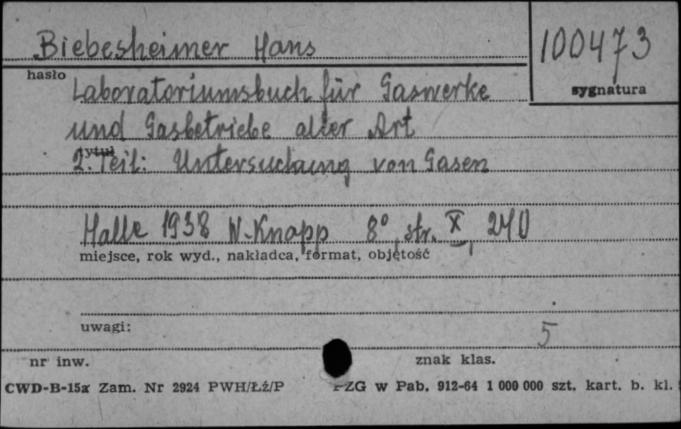 Biebesheimer Hans
100473
hasło
sygnatura
Laboratoriumsbuch für Gaswerke
und Gasbetriebe aller Art
tytuł
2. Teil: Untersuchung von Gasen
Halle 1938 W. Knapp 8° str. X, 240
miejsce, rok wyd., nakładca, format, objętość
uwagi:
5
nr inw.
znak klas.
CWD-B-15a Zam. Nr 2924 PWH/Łź/P
PZG w Pab. 912-64 1 000 000 szt. kart. b. kl.